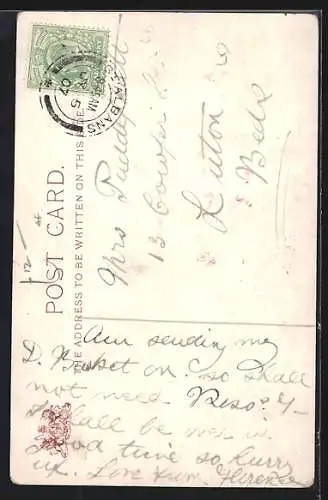 ST ALBANS
8.45 AM
5
07
POST CARD.
THE ADDRESS TO BE WRITTEN ON THIS SIDE
Mrs Puddephatt
13 Cowper St
Luton
Beds
Am sending my
D. Basket on so shall
not need
I shall be over in
good time so hurry
up. Love from Florence